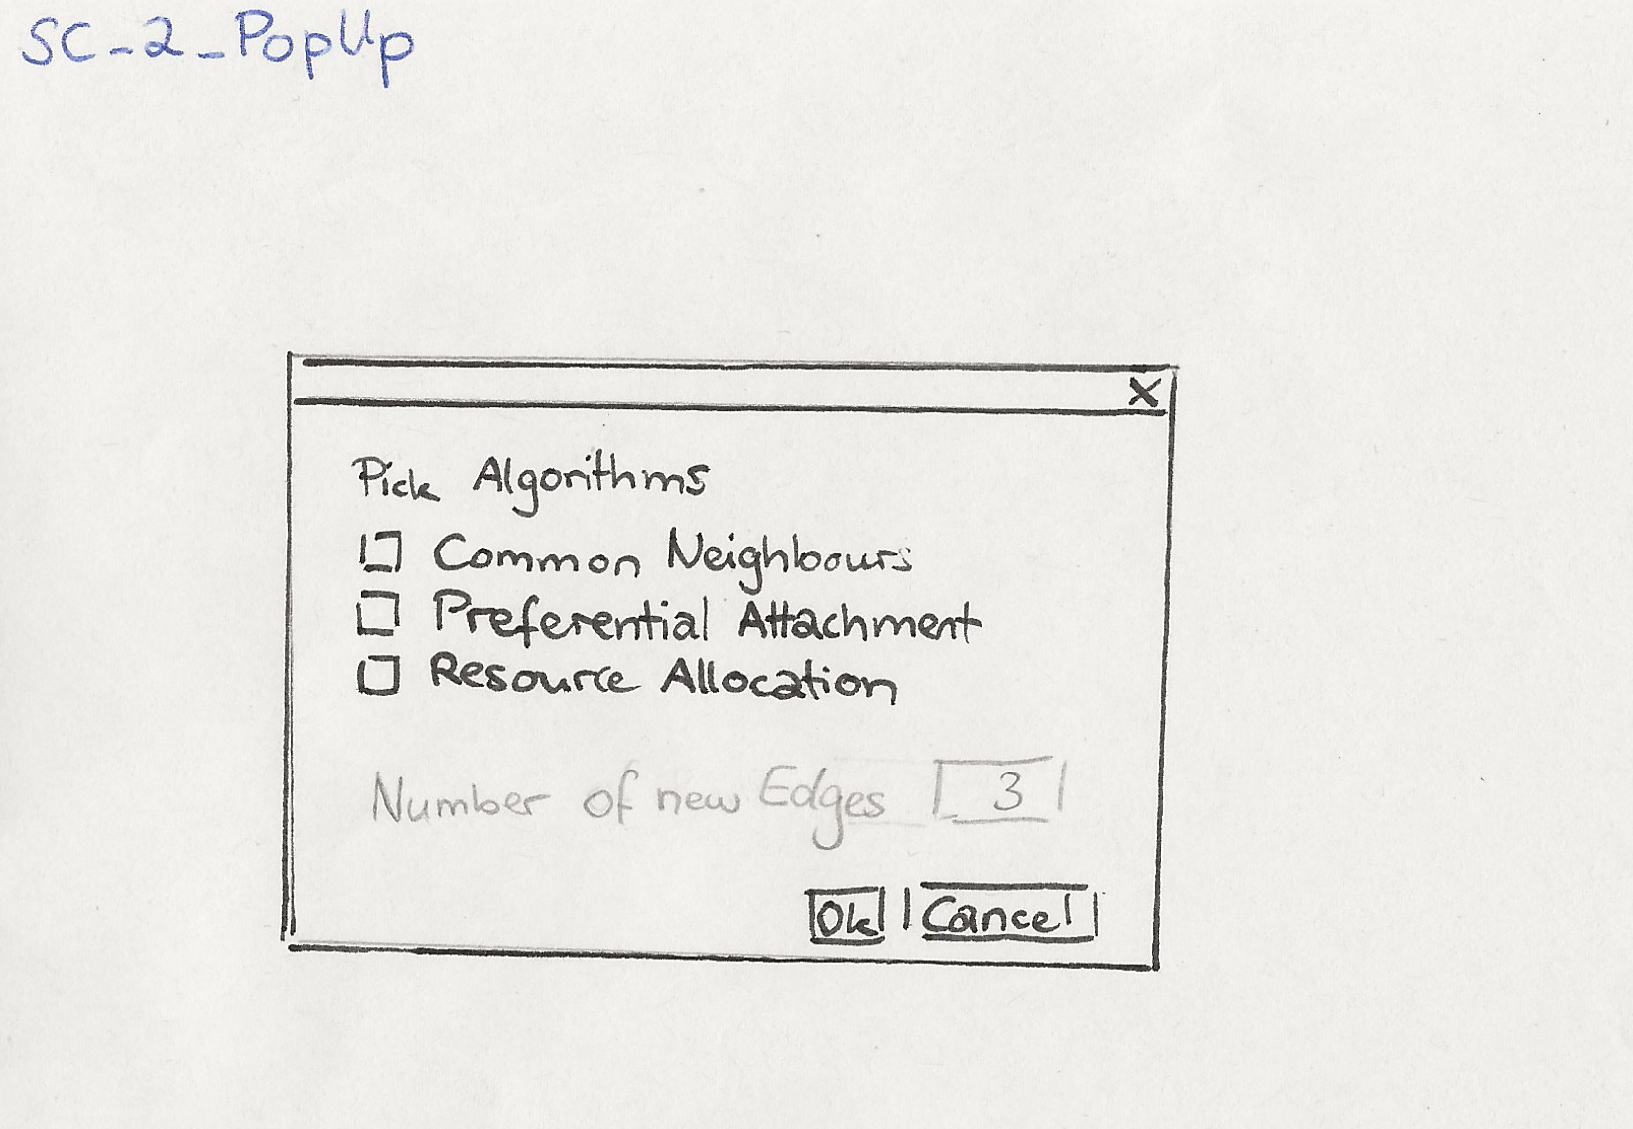 SC-2-PopUp
X
Pick Algorithms
Common Neighbours
Preferential Attachment
Resource Allocation
Number of new Edges 3
Ok Cancel